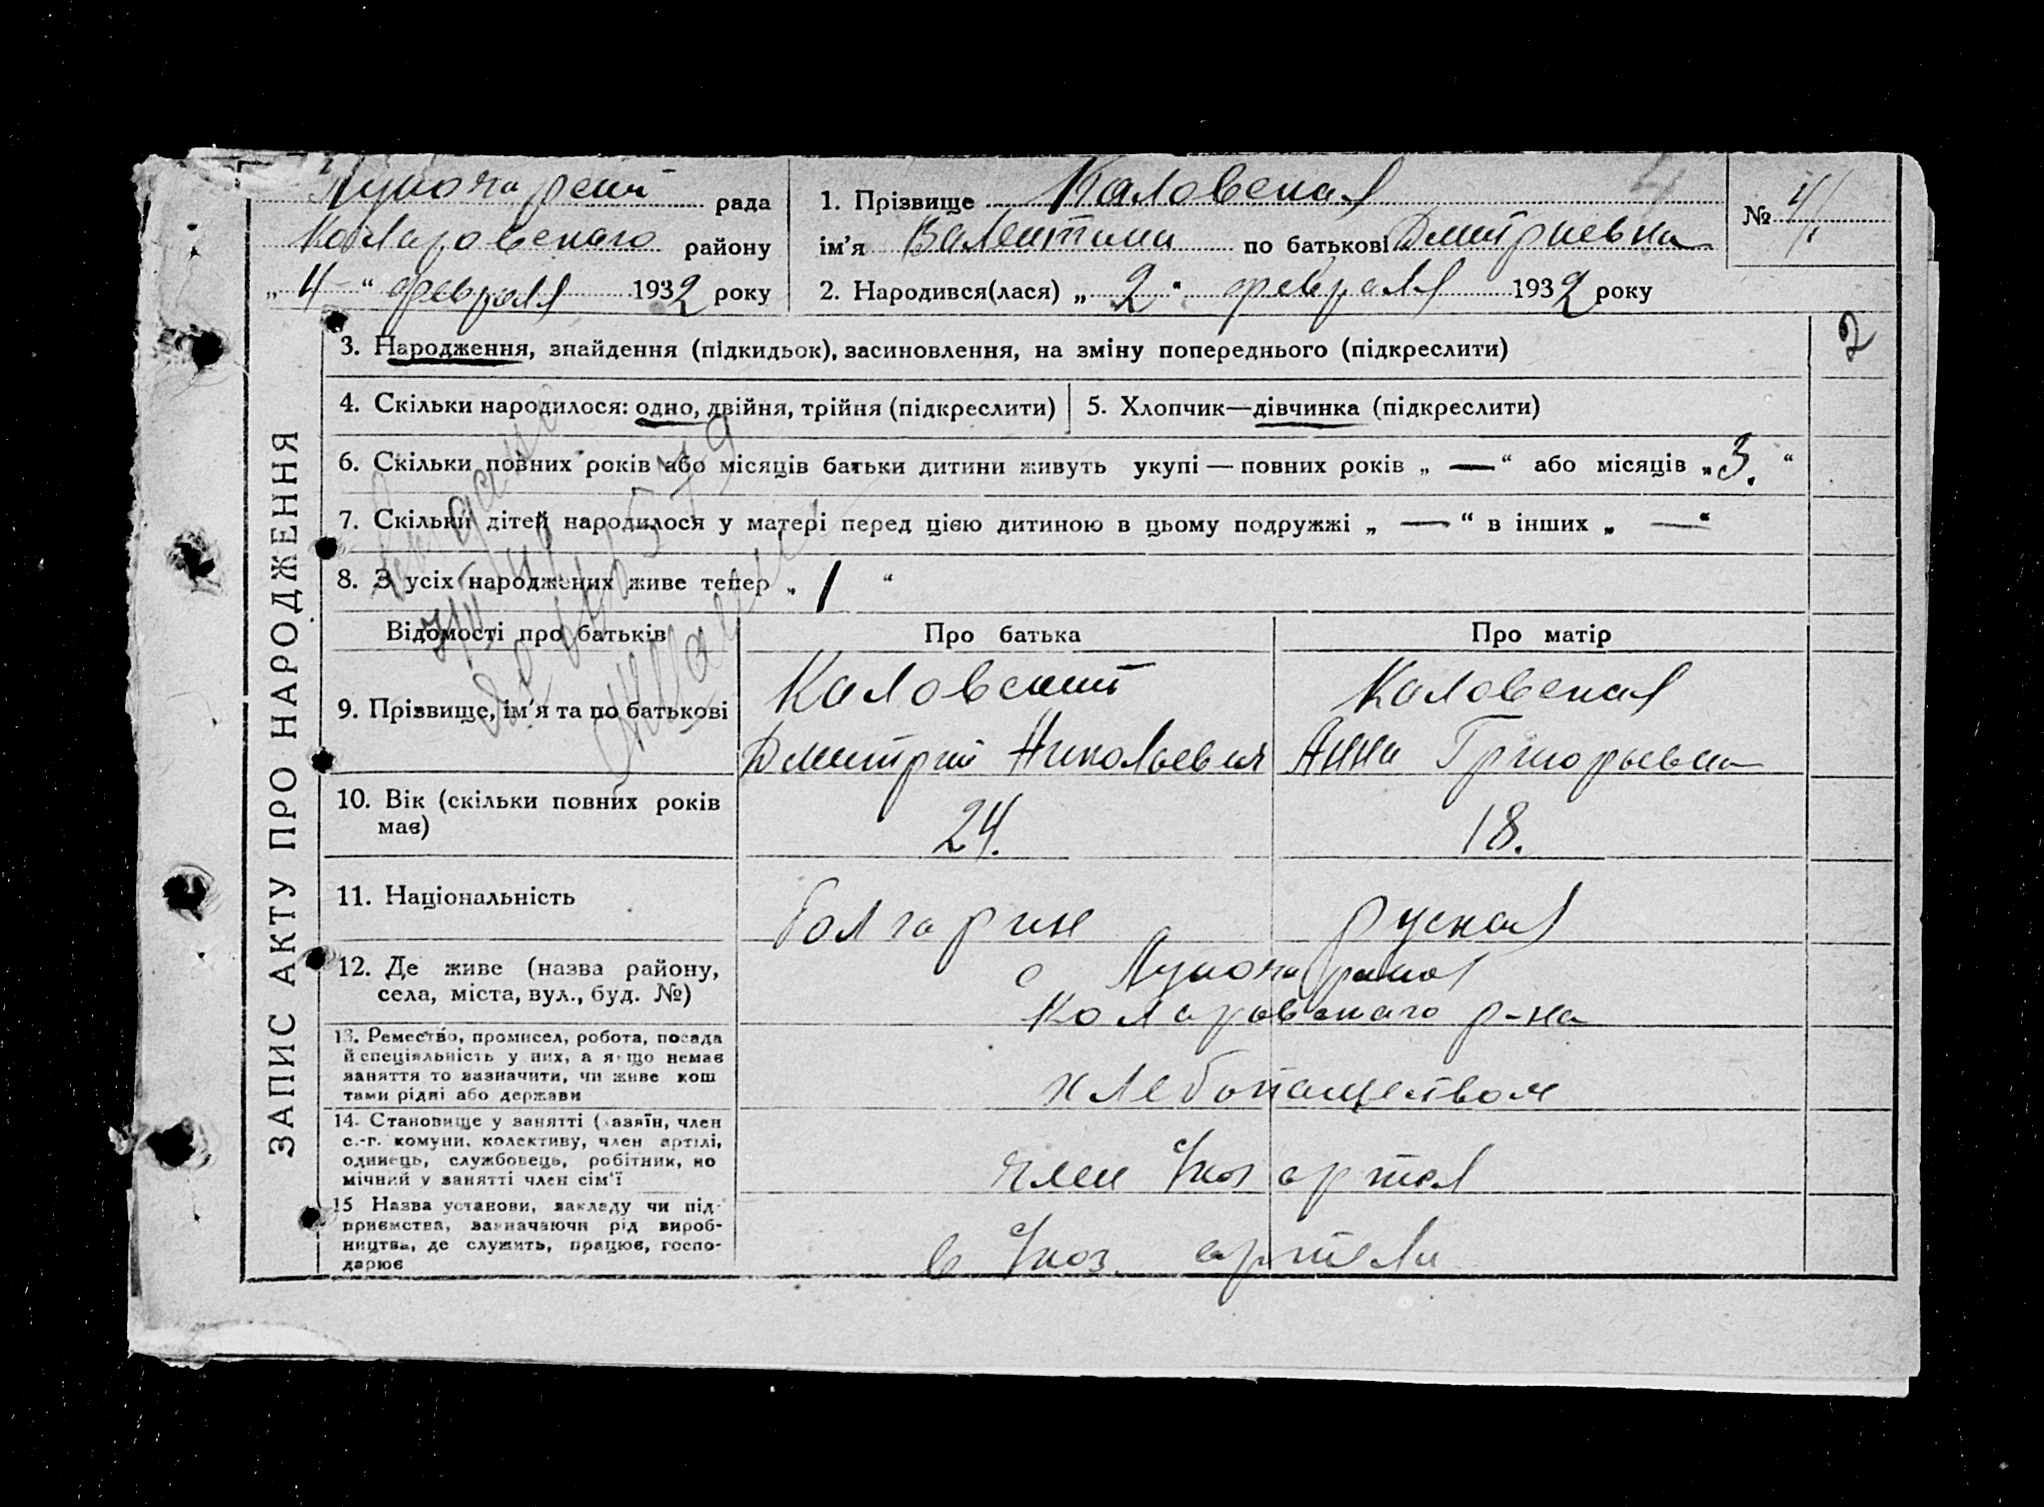 рада
Коларовскаго району
„ 4 “ февраля 1932 року
1. Прізвище Каловская
ім’я Валентина по батькові Дмитриевна
2. Народився(лася) „ 2 “ февраля 1932 року
№ 4
2
ЗАПИС АКТУ ПРО НАРОДЖЕННЯ
3. Народження, знайдення (підкидьок), засиновлення, на зміну попереднього (підкреслити)
4. Скільки народилося: одно, двійня, трійня (підкреслити)
5. Хлопчик—дівчинка (підкреслити)
6. Скільки повних років або місяців батьки дитини живуть укупі — повних років „ — “ або місяців „ 3. “
7. Скільки дітей народилося у матері перед цією дитиною в цьому подружжі „ — “ в інших „ — “
8. З усіх народжених живе тепер „ 1 “
Відомості про батьків
Про батька
Про матір
9. Прізвище, ім’я та по батькові
Каловский
Дмитрий Николаевич
Каловская
Анна Григорьевна
10. Вік (скільки повних років
має)
24.
18.
11. Національність
болгарин
руская
12. Де живе (назва району,
села, міста, вул., буд. №)
с
Коларовскаго р-на
13. Ремество, промисел, робота, посада
й спеціяльність у них, а якщо немає
заняття то зазначити, чи живе кош
тами рідні або держави
хлебопашеством
14. Становище у занятті (хазяїн, член
с.-г. комуни, колективу, член артілі,
одинець, службовець, робітник, по
мічний у занятті член сім’ї
член артел
15 Назва установи, закладу чи під-
приємства, зазначаючи рід вироб-
ництва, де служить, працює, госпо-
дарює
в артели